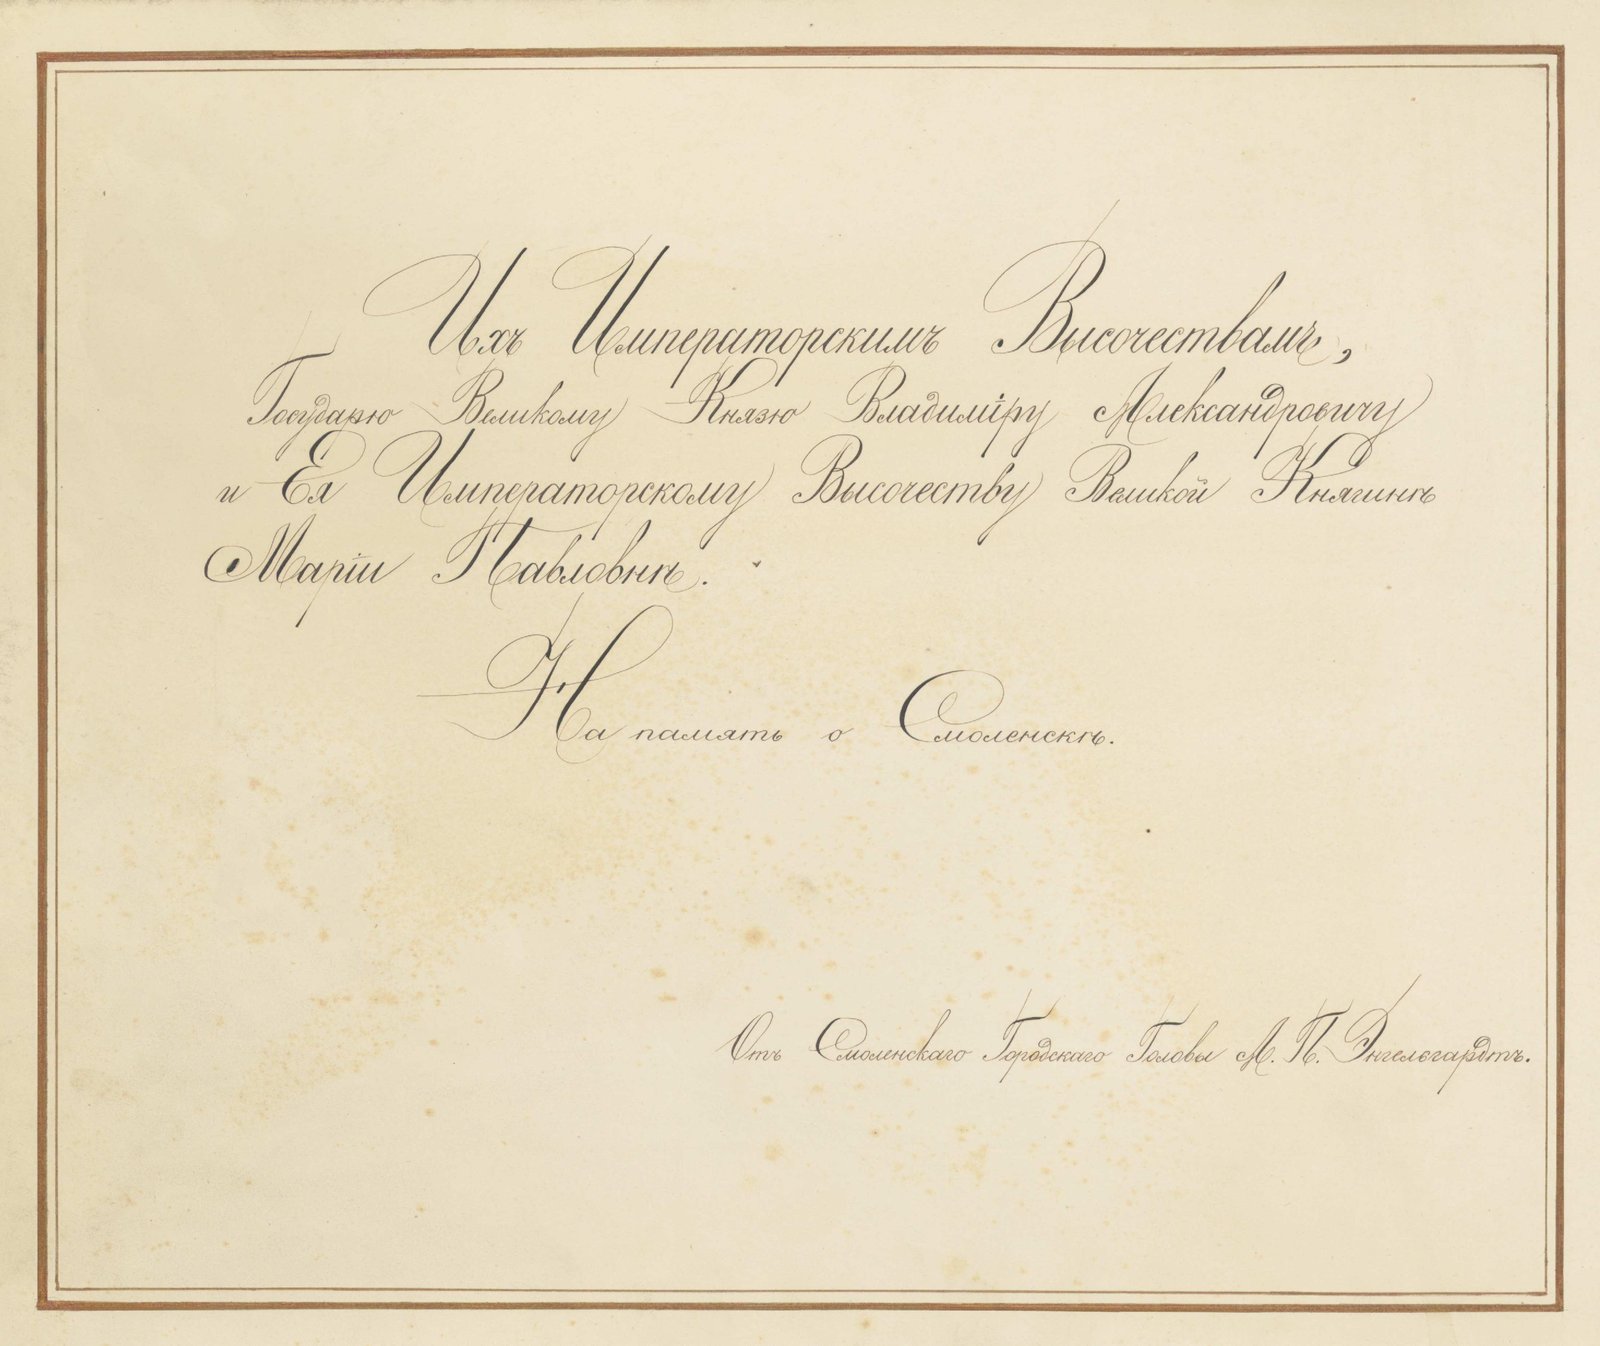 Ихъ Императорскимъ Высочествамъ,
Государю Великому Князю Владиміру Александровичу
и Ея Императорскому Высочеству Великой Княгинѣ
Маріи Павловнѣ.
На память о Смоленскѣ.
Отъ Смоленскаго Городскаго Головы А. П. Энгельгардтъ.